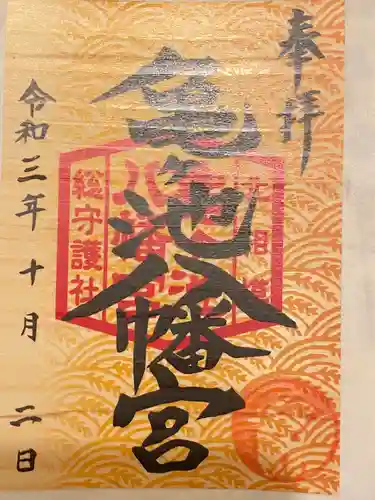 奉拝
亀ヶ池八幡宮
令和三年十月二日
総守護社